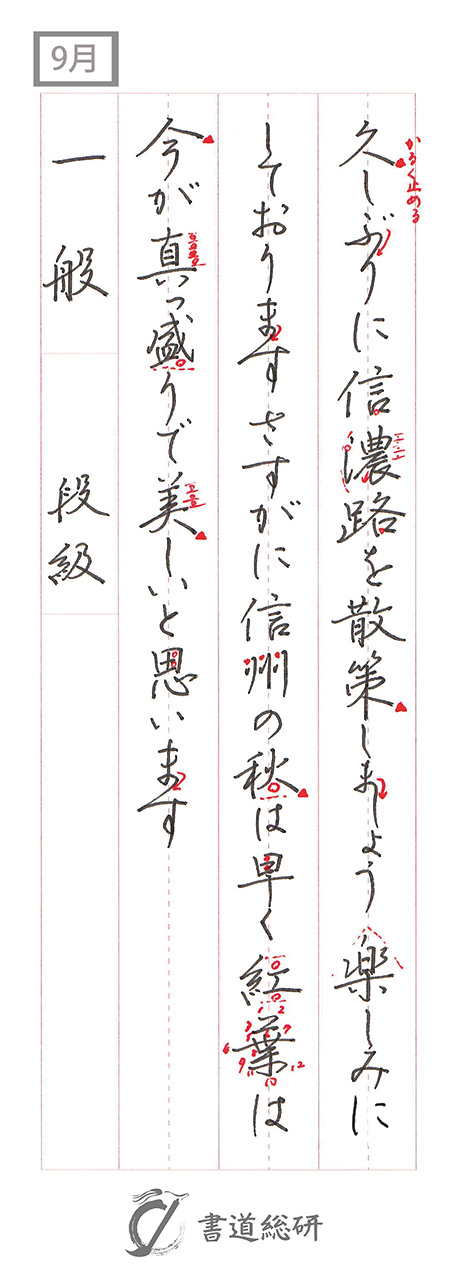 9月
かるく止める
久しぶりに信濃路を散策しましょう 楽しみに
しております さすがに信州の秋は早く紅葉は
今が真っ盛りで美しいと思います
一般 段級
1 2 3 7 6 9 11 10 12
書道総研